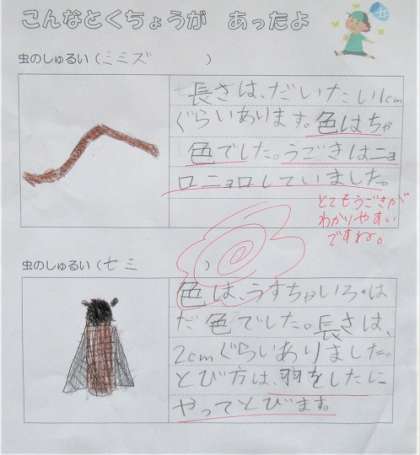 こんなとくちょうが あったよ
虫のしゅるい（ミミズ ）
長さは、だいたい1cm
ぐらいあります。色はちゃ
色でした。うごきはニョ
ロニョロしていました。
とてもうごきが
わかりやすい
ですね。
虫のしゅるい（セミ ）
色は、うすちゃいろ・は
だ色でした。長さは、
2cmぐらいありました。
とび方は、羽をしたに
やってとびます。